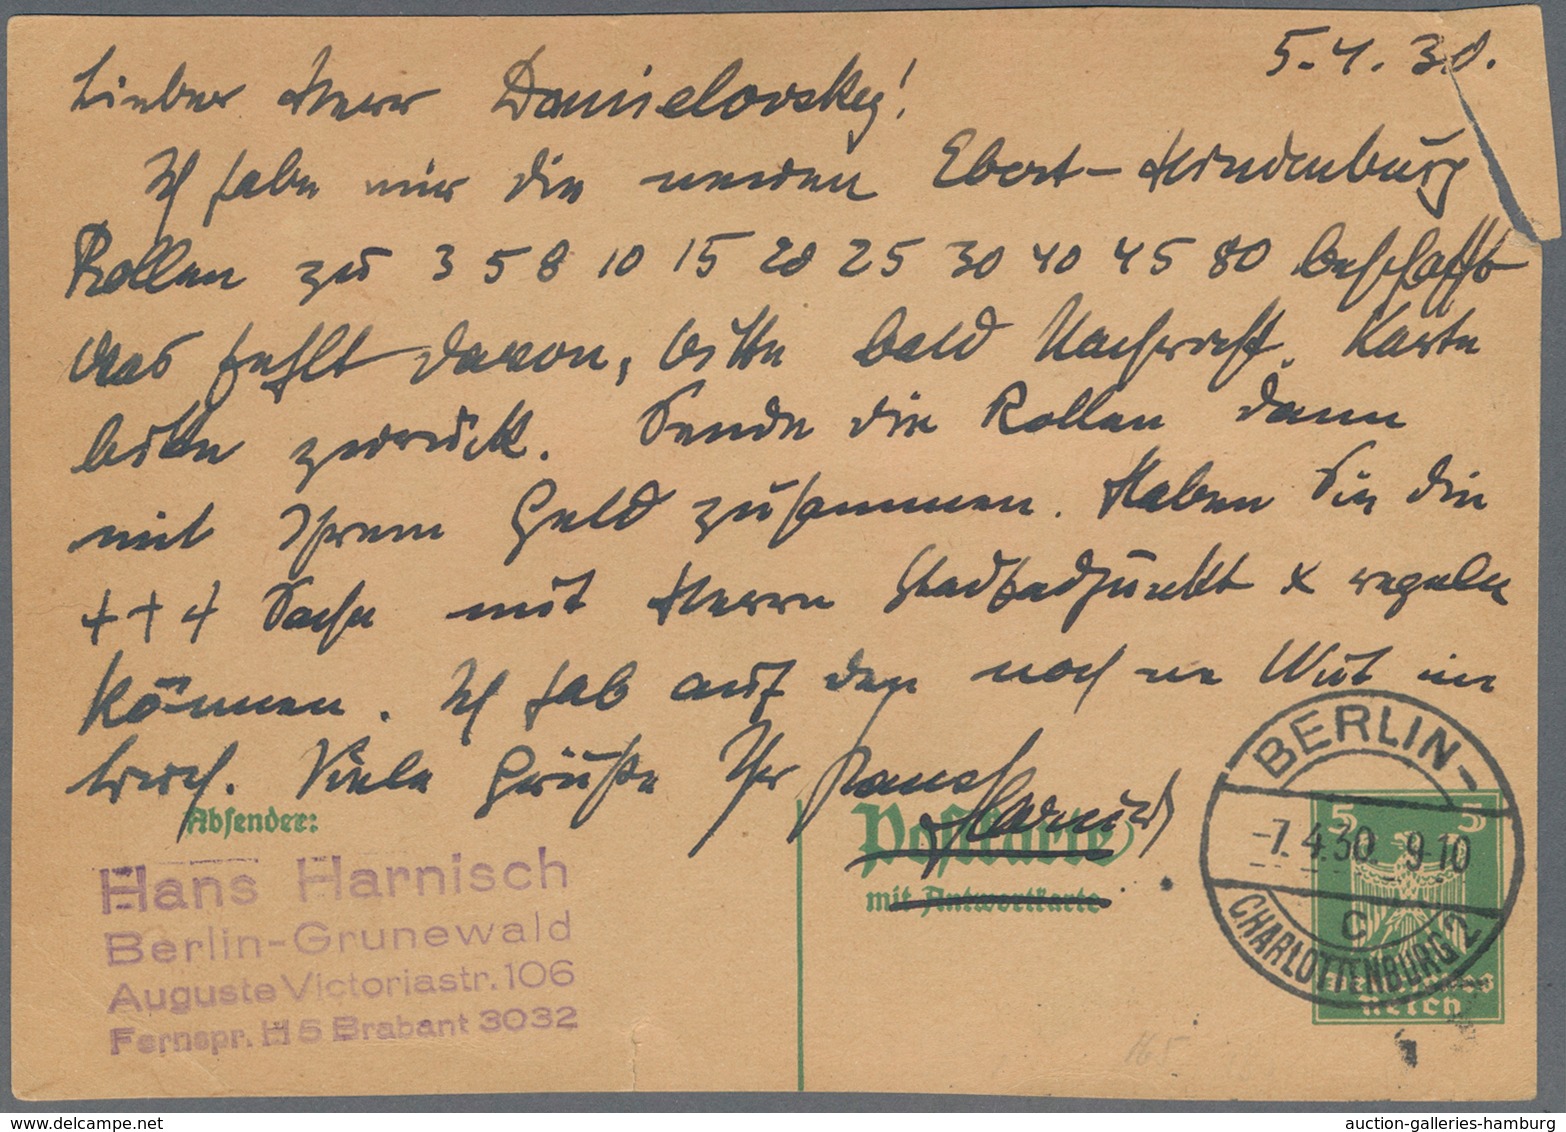 5.4.30.
Lieber Herr Danielovsky!
Ich habe mir die neuen Ebert-Hindenburg
Rollen zu 3 5 8 10 15 20 25 30 40 45 80 beschafft
was fehlt davon, bitte bald Nachricht. Karte
bitte zurück. Sende die Rollen dann
mit Ihrem Geld zusammen. Haben Sie die
+++ Sache mit Herrn Stadtadjunkt x regeln
können. Ich hab auf den noch ne Wut im
Bauch. Viele Grüße Ihr
Harnisch
Absender:
Hans Harnisch
Berlin-Grunewald
Auguste Victoriastr. 106
Fernspr. H 5 Brabant 3032
Postkarte
mit Antwortkarte
5 5
Deutsches
Reich
BERLIN-
-7.4.30. 9-10
C
CHARLOTTENBURG 2
auction-galleries-hamburg